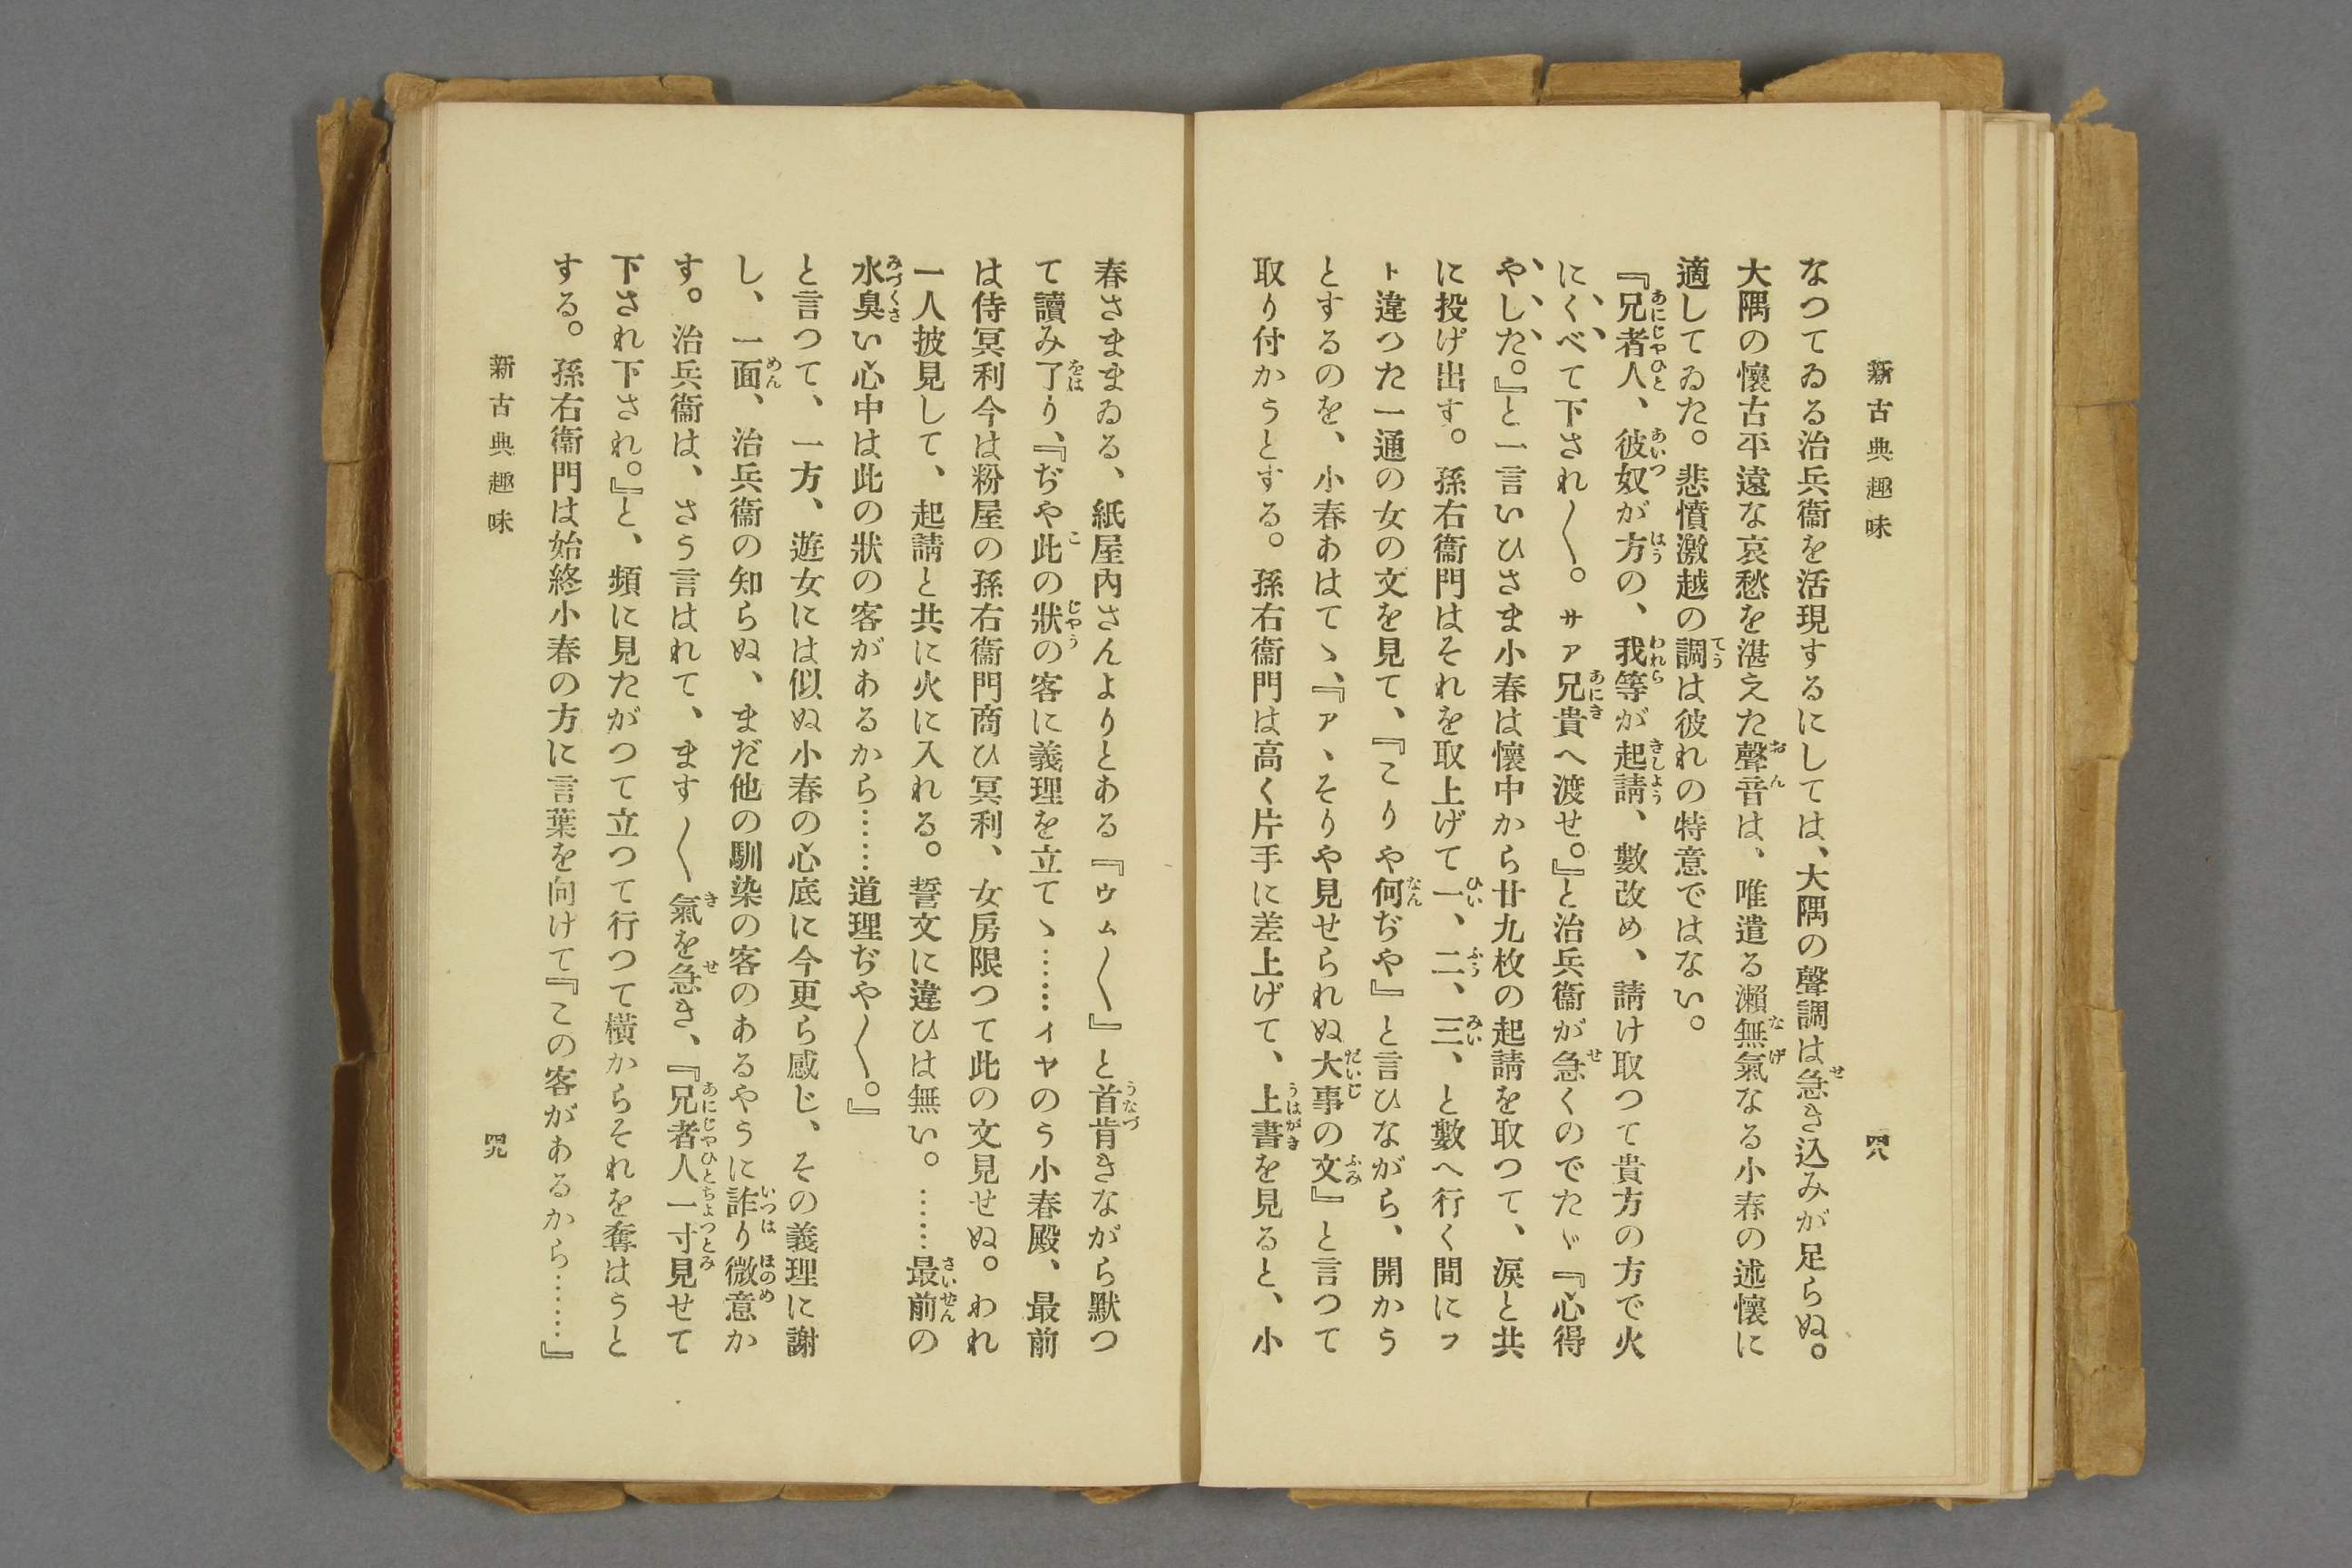 新古典趣味
四八
なつてゐる治兵衞を活現するにしては、大隅の聲調は急き込みが足らぬ。
大隅の懷古平遠な哀愁を湛えた聲音は、唯遣る瀨無氣なる小春の述懷に
適してゐた。悲憤激越の調は彼れの特意ではない。
『兄者人、彼奴が方の、我等が起請、數改め、請け取つて貴方の方で火
にくべて下され〱。サア兄貴へ渡せ。』と治兵衞が急くのでたゞ『心得
やした。』と一言いひさま小春は懷中から廿九枚の起請を取つて、淚と共
に投げ出す。孫右衞門はそれを取上げて一、二、三、と數へ行く間にフ
ト違つた一通の女の文を見て、『こりや何ぢや』と言ひながら、開かう
とするのを、小春あはてゝ、『ア、そりや見せられぬ大事の文』と言つて
取り付かうとする。孫右衞門は高く片手に差上げて、上書を見ると、小
春さままゐる、紙屋內さんよりとある『ウム〱』と首肯きながら默つ
て讀み了り、『ぢや此の狀の客に義理を立てゝ……イヤのう小春殿、最前
は侍冥利今は粉屋の孫右衞門商ひ冥利、女房限つて此の文見せぬ。われ
一人披見して、起請と共に火に入れる。誓文に違ひは無い。……最前の
水臭い心中は此の狀の客があるから……道理ぢや〱。』
と言つて、一方、遊女には似ぬ小春の心底に今更ら感じ、その義理に謝
し、一面、治兵衞の知らぬ、まだ他の馴染の客のあるやうに詐り微意か
す。治兵衞は、さう言はれて、ます〱氣を急き、『兄者人一寸見せて
下され下され。』と、頻に見たがつて立つて行つて橫からそれを奪はうと
する。孫右衞門は始終小春の方に言葉を向けて『この客があるから……』
新古典趣味
四九